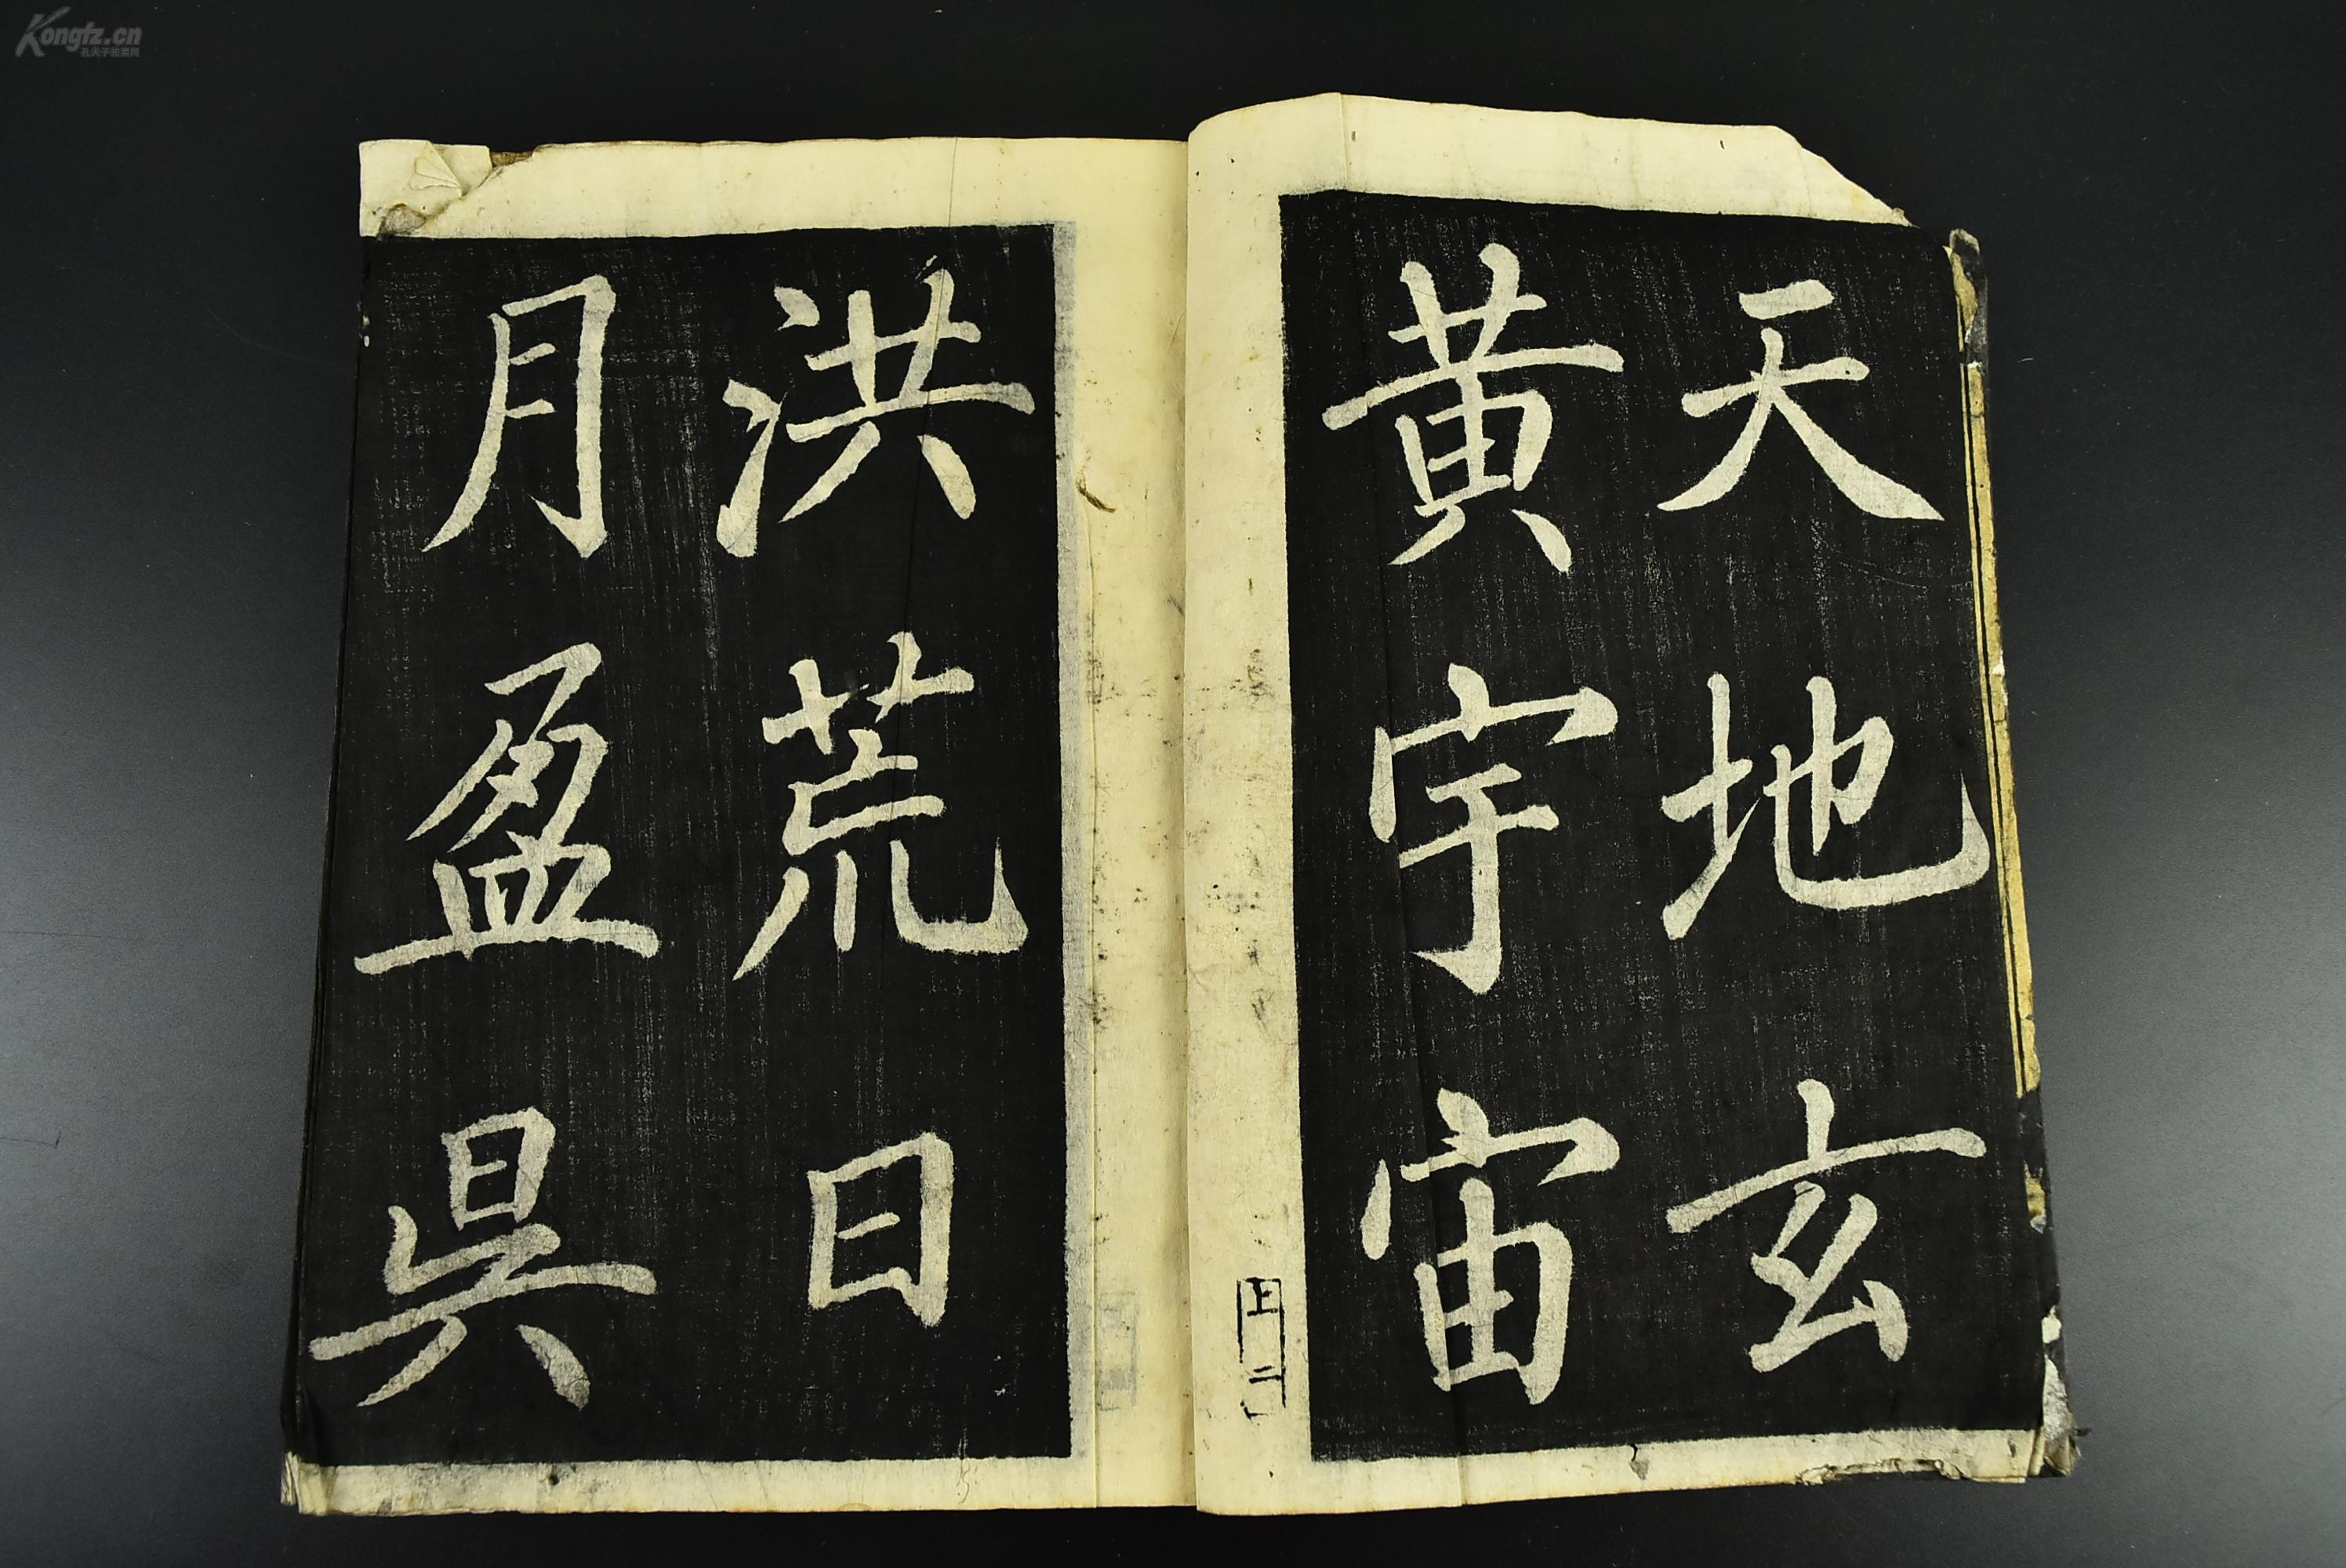 天地玄
黄宇宙
洪荒日
月盈昃
上 二
Kongfz.cn
孔夫子拍卖网